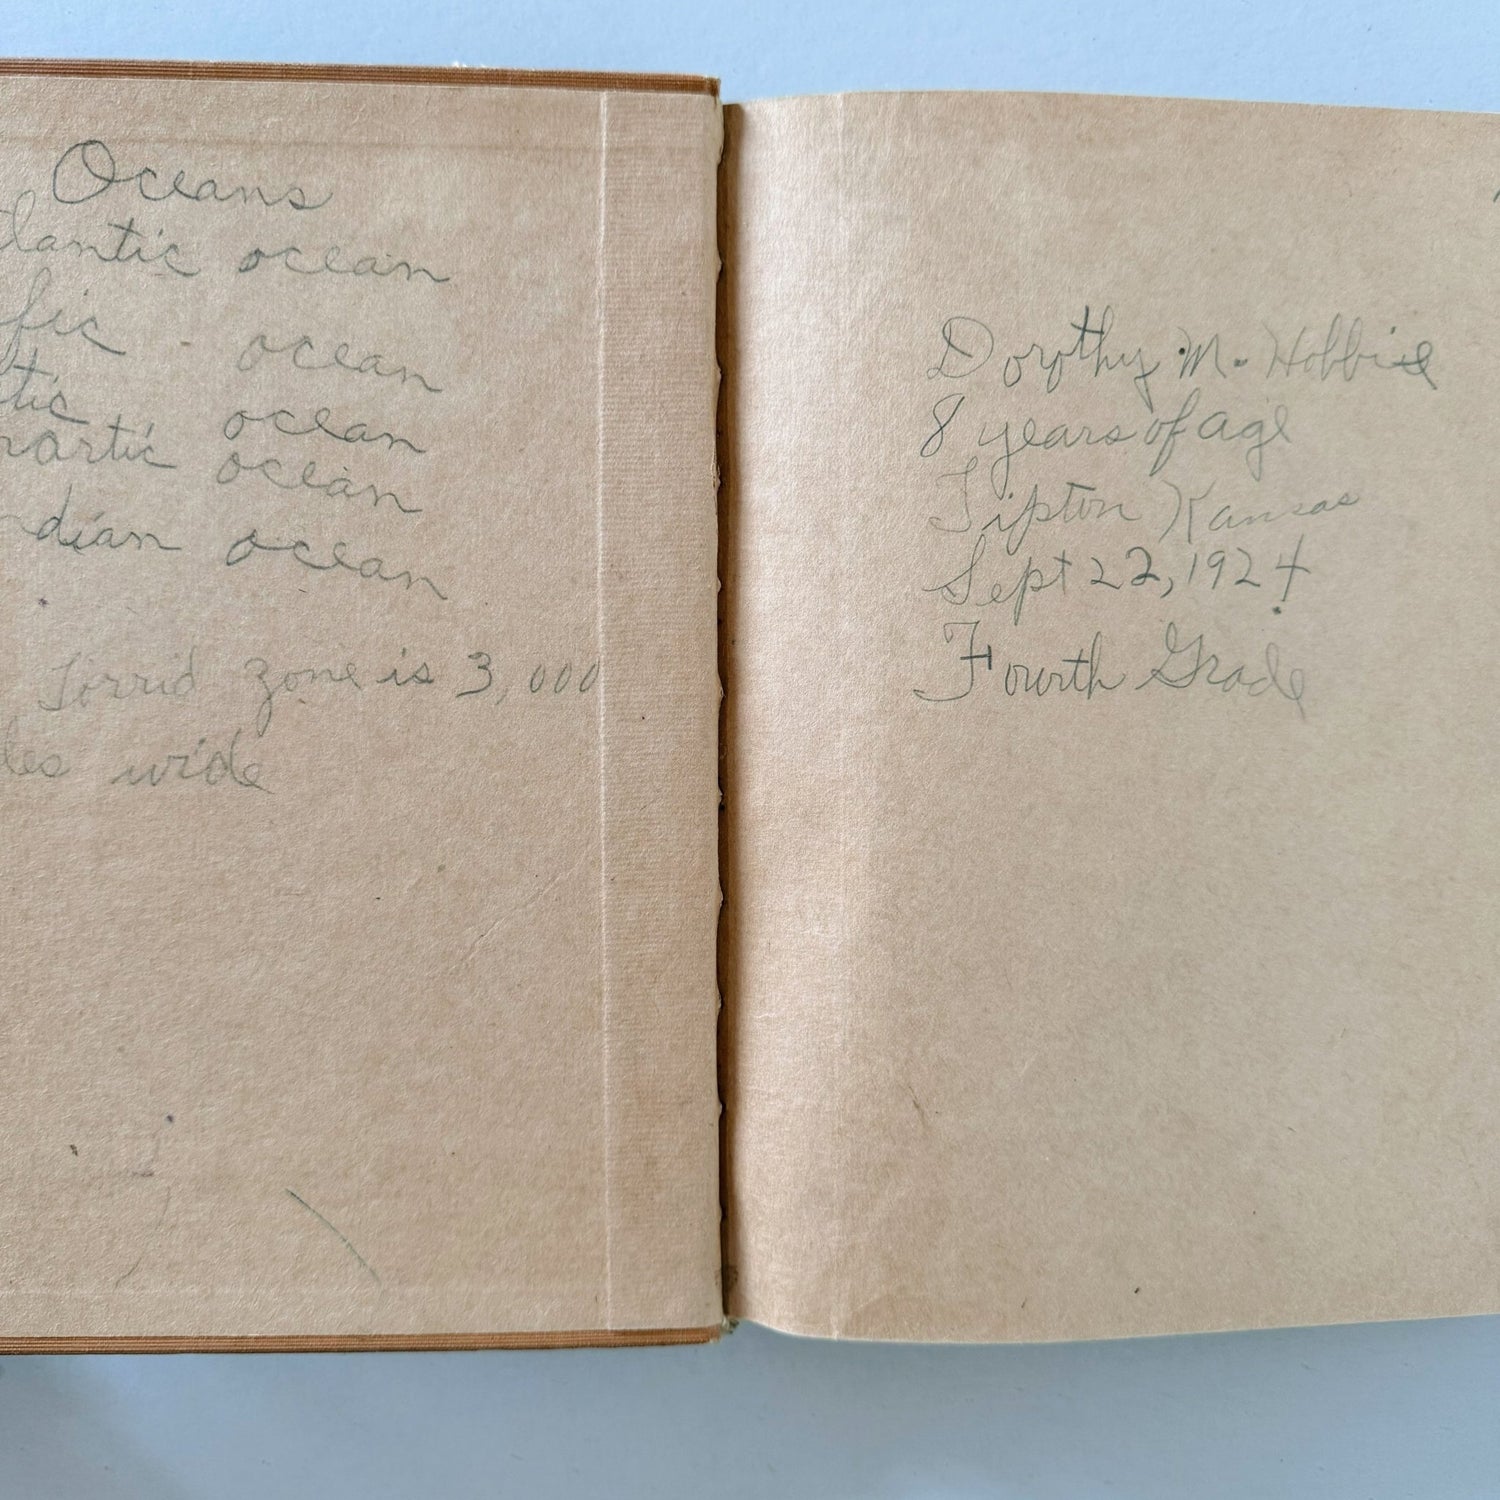 Oceans
tlantic ocean
fic - ocean
tic ocean
nartic ocean
ndian ocean
Torrid zone is 3,000
les wide
Dorothy M. Hobbie
8 years of age
Tipton Kansas
Sept 22, 1924
Fourth Grade